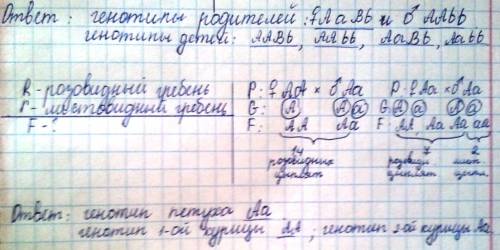 Ответ: генотипы родителей: ♀AaBb и ♂AAbb
генотипы детей: AABb, AAbb, AaBb, Aabb
R - розовидный гребень
r - листовидный гребень
F - ?
P: ♀AA × ♂Aa
G: A A a
F: AA Aa
14
розовидных
цыплят
P: ♀Aa × ♂Aa
G: A a A a
F: AA Aa Aa aa
7 2
розовидн. лист
цыплят цыпл.
Ответ: генотип петуха Aa
генотип 1-ой курицы AA; генотип 2-ой курицы Aa